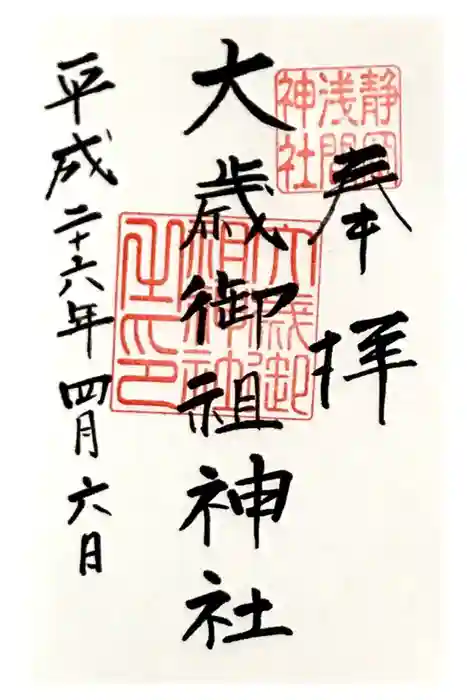 奉拝
静岡
浅間
神社
大歳御祖神社
大歳御
祖神
之印
平成二十六年四月六日